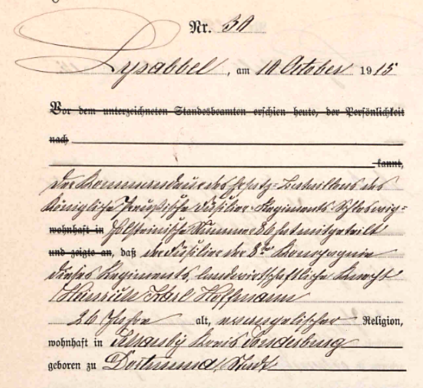 Nr. 31
Lysabbel, am 11 October 1915
Vor dem unterzeichneten Standesbeamten erschien heute, der Persönlichkeit
nach
kannt,
Der Kommandeur des Ersatz-Bataillons des
Königliche Preußische Füsilier-Regiments Schleswig-
wohnhaft in Holsteinische Nummer 86 hat mitgeteilt
und zeigte an, daß der Füsilier der 8ten Kompagnie
dieses Regiments, landwirtschaftliche Knecht
Heinrich Karl Hoffmann
26 Jahre alt, evangelischer Religion,
wohnhaft in Kreis Sonderburg
geboren zu Dortmund, Stadt